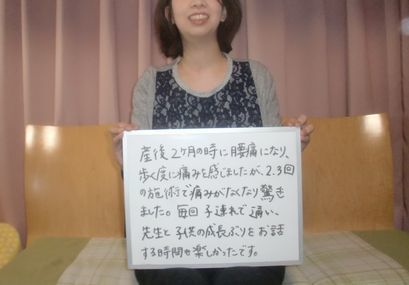 産後2ヶ月の時に腰痛になり、
歩く度に痛みを感じましたが、2.3回
の施術で痛みがなくなり驚き
ました。毎回子連れで通い、
先生と子供の成長ぶりをお話
する時間も楽しかったです。